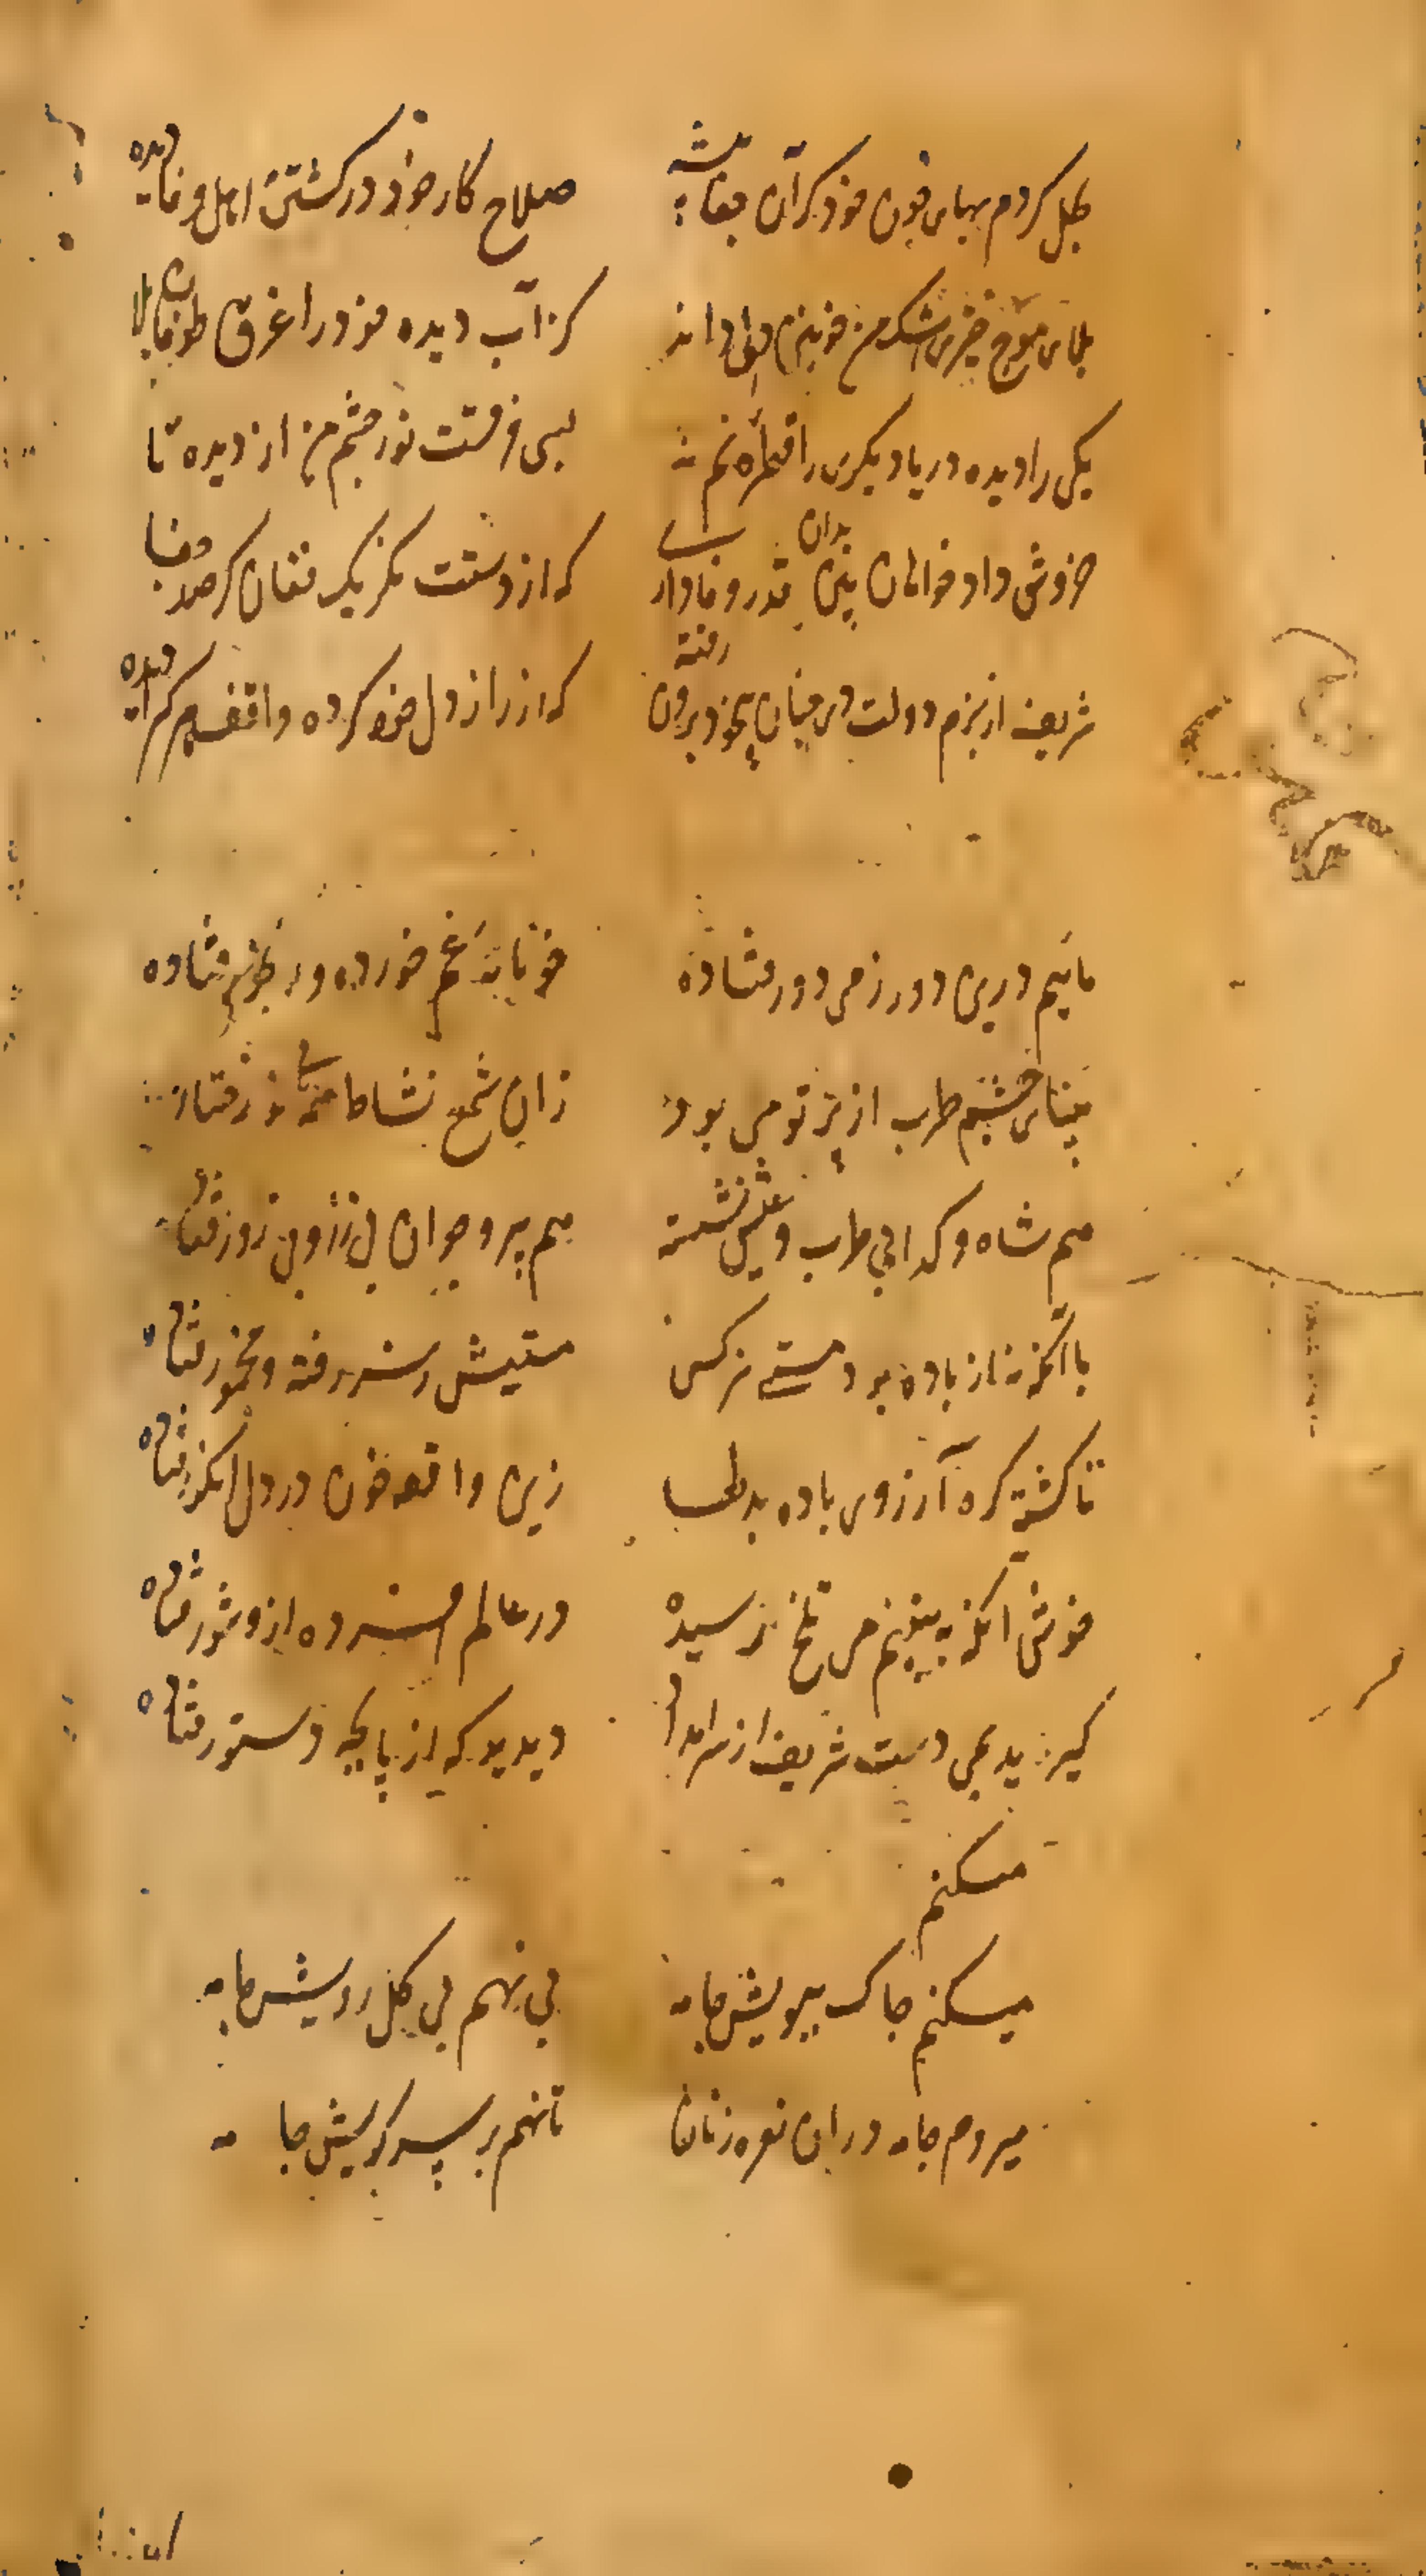 بحل کردم بهای خون خود گر آن جفا پیشه صلاح کار خود در کشتن اهل وفا دیده
بلای موج خیز اشک من خونین دلی داند کز آب دیده خود را غرق طوفان بلا
یکی را دیده دریا دیگری را قطره نم نه بسی فرقست نور چشم من از دیده تا
خروش دادخواهان بین بدان قدر وفاداری که از دستت مگر یک فغان کرد صد جفا
شریف از بزم دولت در میان بیخود برون رفته که از راز دل خود کرده واقف هر کرا دیده
مائیم درین دور ز می دور فتاده خونابه غم خورده و رنجور فتاده
بینای چشم طرب از پرتو می بود زان شمع نشاط همه بی نور فتاده
هم شاه و گدا بی طرب و عیش نشسته هم پیر و جوان بی زر و بی زور فتاده
با آنکه نه از باده بود مستی نرگس مستیش ز سر رفته و مخمور فتاده
تا گشته گره آرزوی باده بدلها زین واقعه خون در دل انگور فتاده
خوش آنکه ببینیم می تلخ رسیده در عالم افسرده ازو شور فتاده
گیرید بمی دست شریف از سر امداد دیدید که از پا بچه دستور فتاده
میکنم
میکنم چاک ببویش جامه بی نهم بی گل رویش جامه
میروم جامه دران نعره زنان تا نهم بر سر کویش جامه